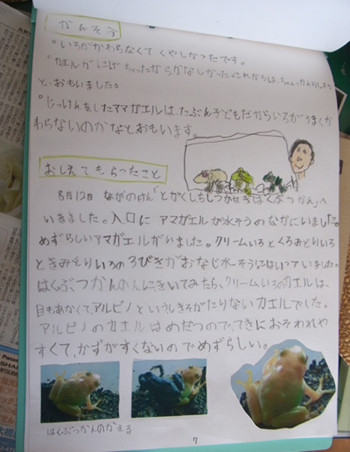 かんそう
°いろがかわらなくてくやしかったです。
とおもいました。
°じっけんをしたアマガエルは、たぶん子どもだからいろがうまくか
わらないのかなとおもいます。
おしえてもらったこと
8月12日 ながのけん「とがくしちしつかせきはくぶつかん」へ
いきました。入口にアマガエルが水そうのなかにいました。
めずらしいアマガエルがいました。クリームいろとくろみどりいろ
ときみどりいろの3びきがおなじ水そうにはいっていました。
はくぶつかんの人にきいてみたら、クリームいろのカエルは、
目もあかくて、アルビノといういろしきそがたりないカエルでした。
アルビノのカエルはめだつので、てきにおそわれや
すくて、かずがすくないのでめずらしい。
はくぶつかんのかえる
7